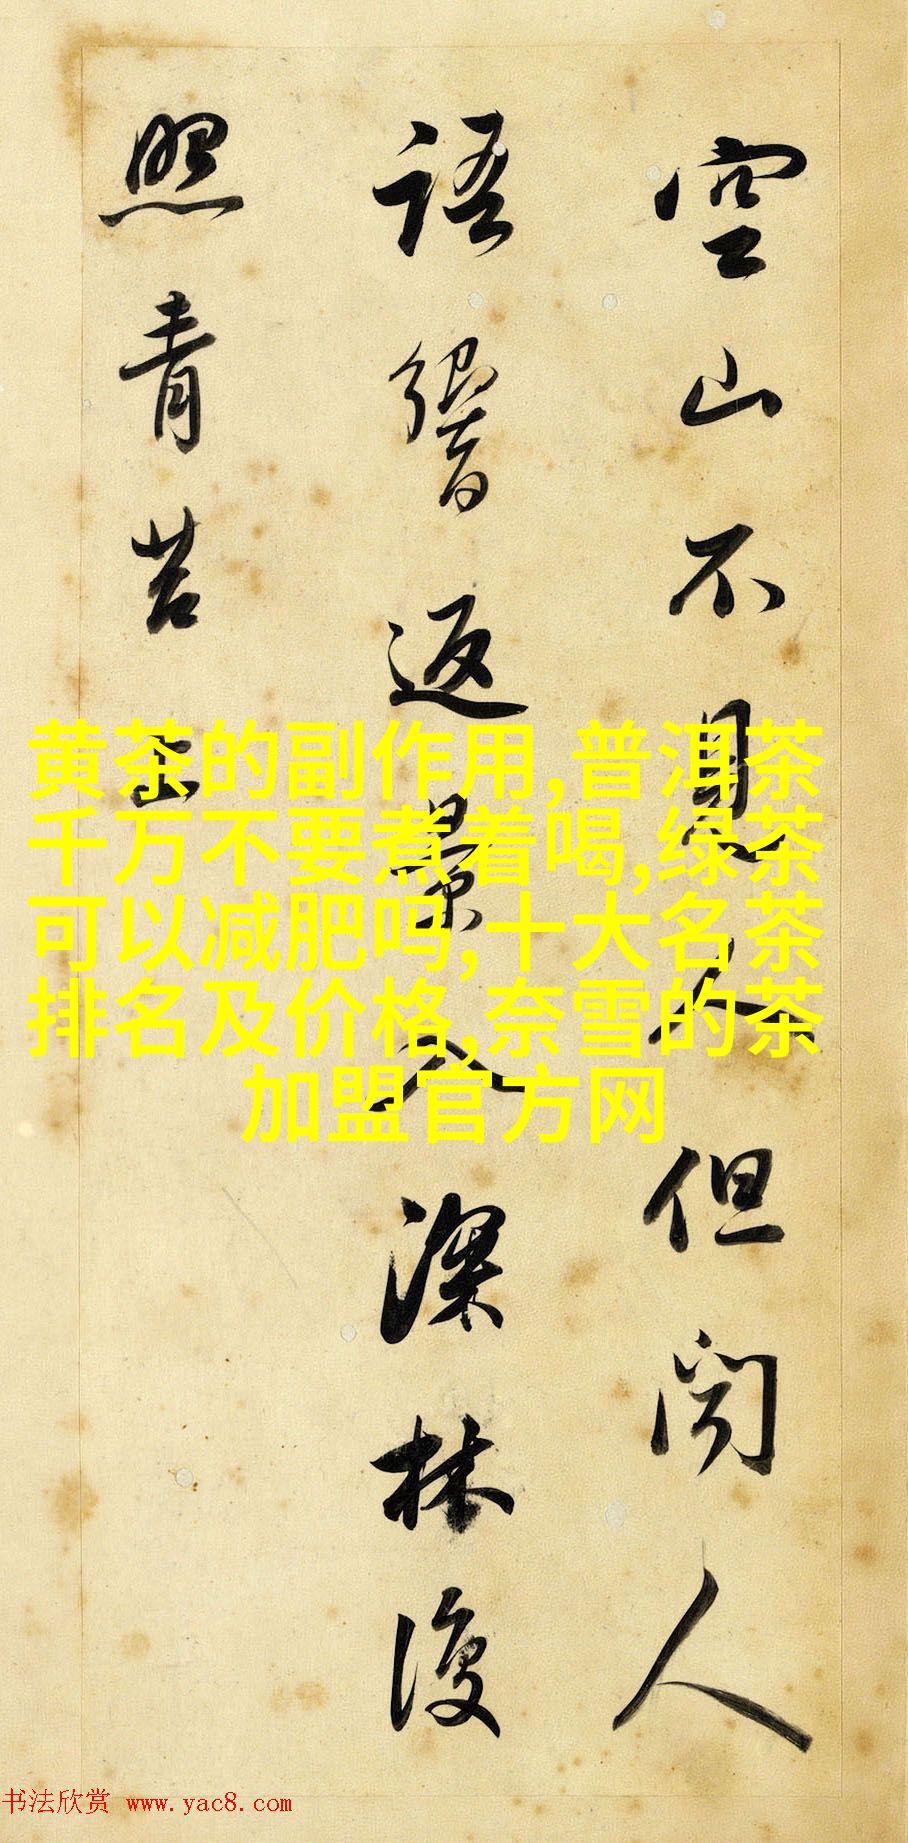 空山不見人但聞人
語響返景入深林復
照青苔上
黄茶的副作用,普洱茶
千万不要煮着喝,绿茶
可以减肥吗,十大名茶
排名及价格,奈雪的茶
加盟官方网
书法欣赏 www.yac8.com